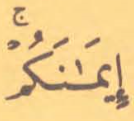 إِيمَٰنَكُمْۚ